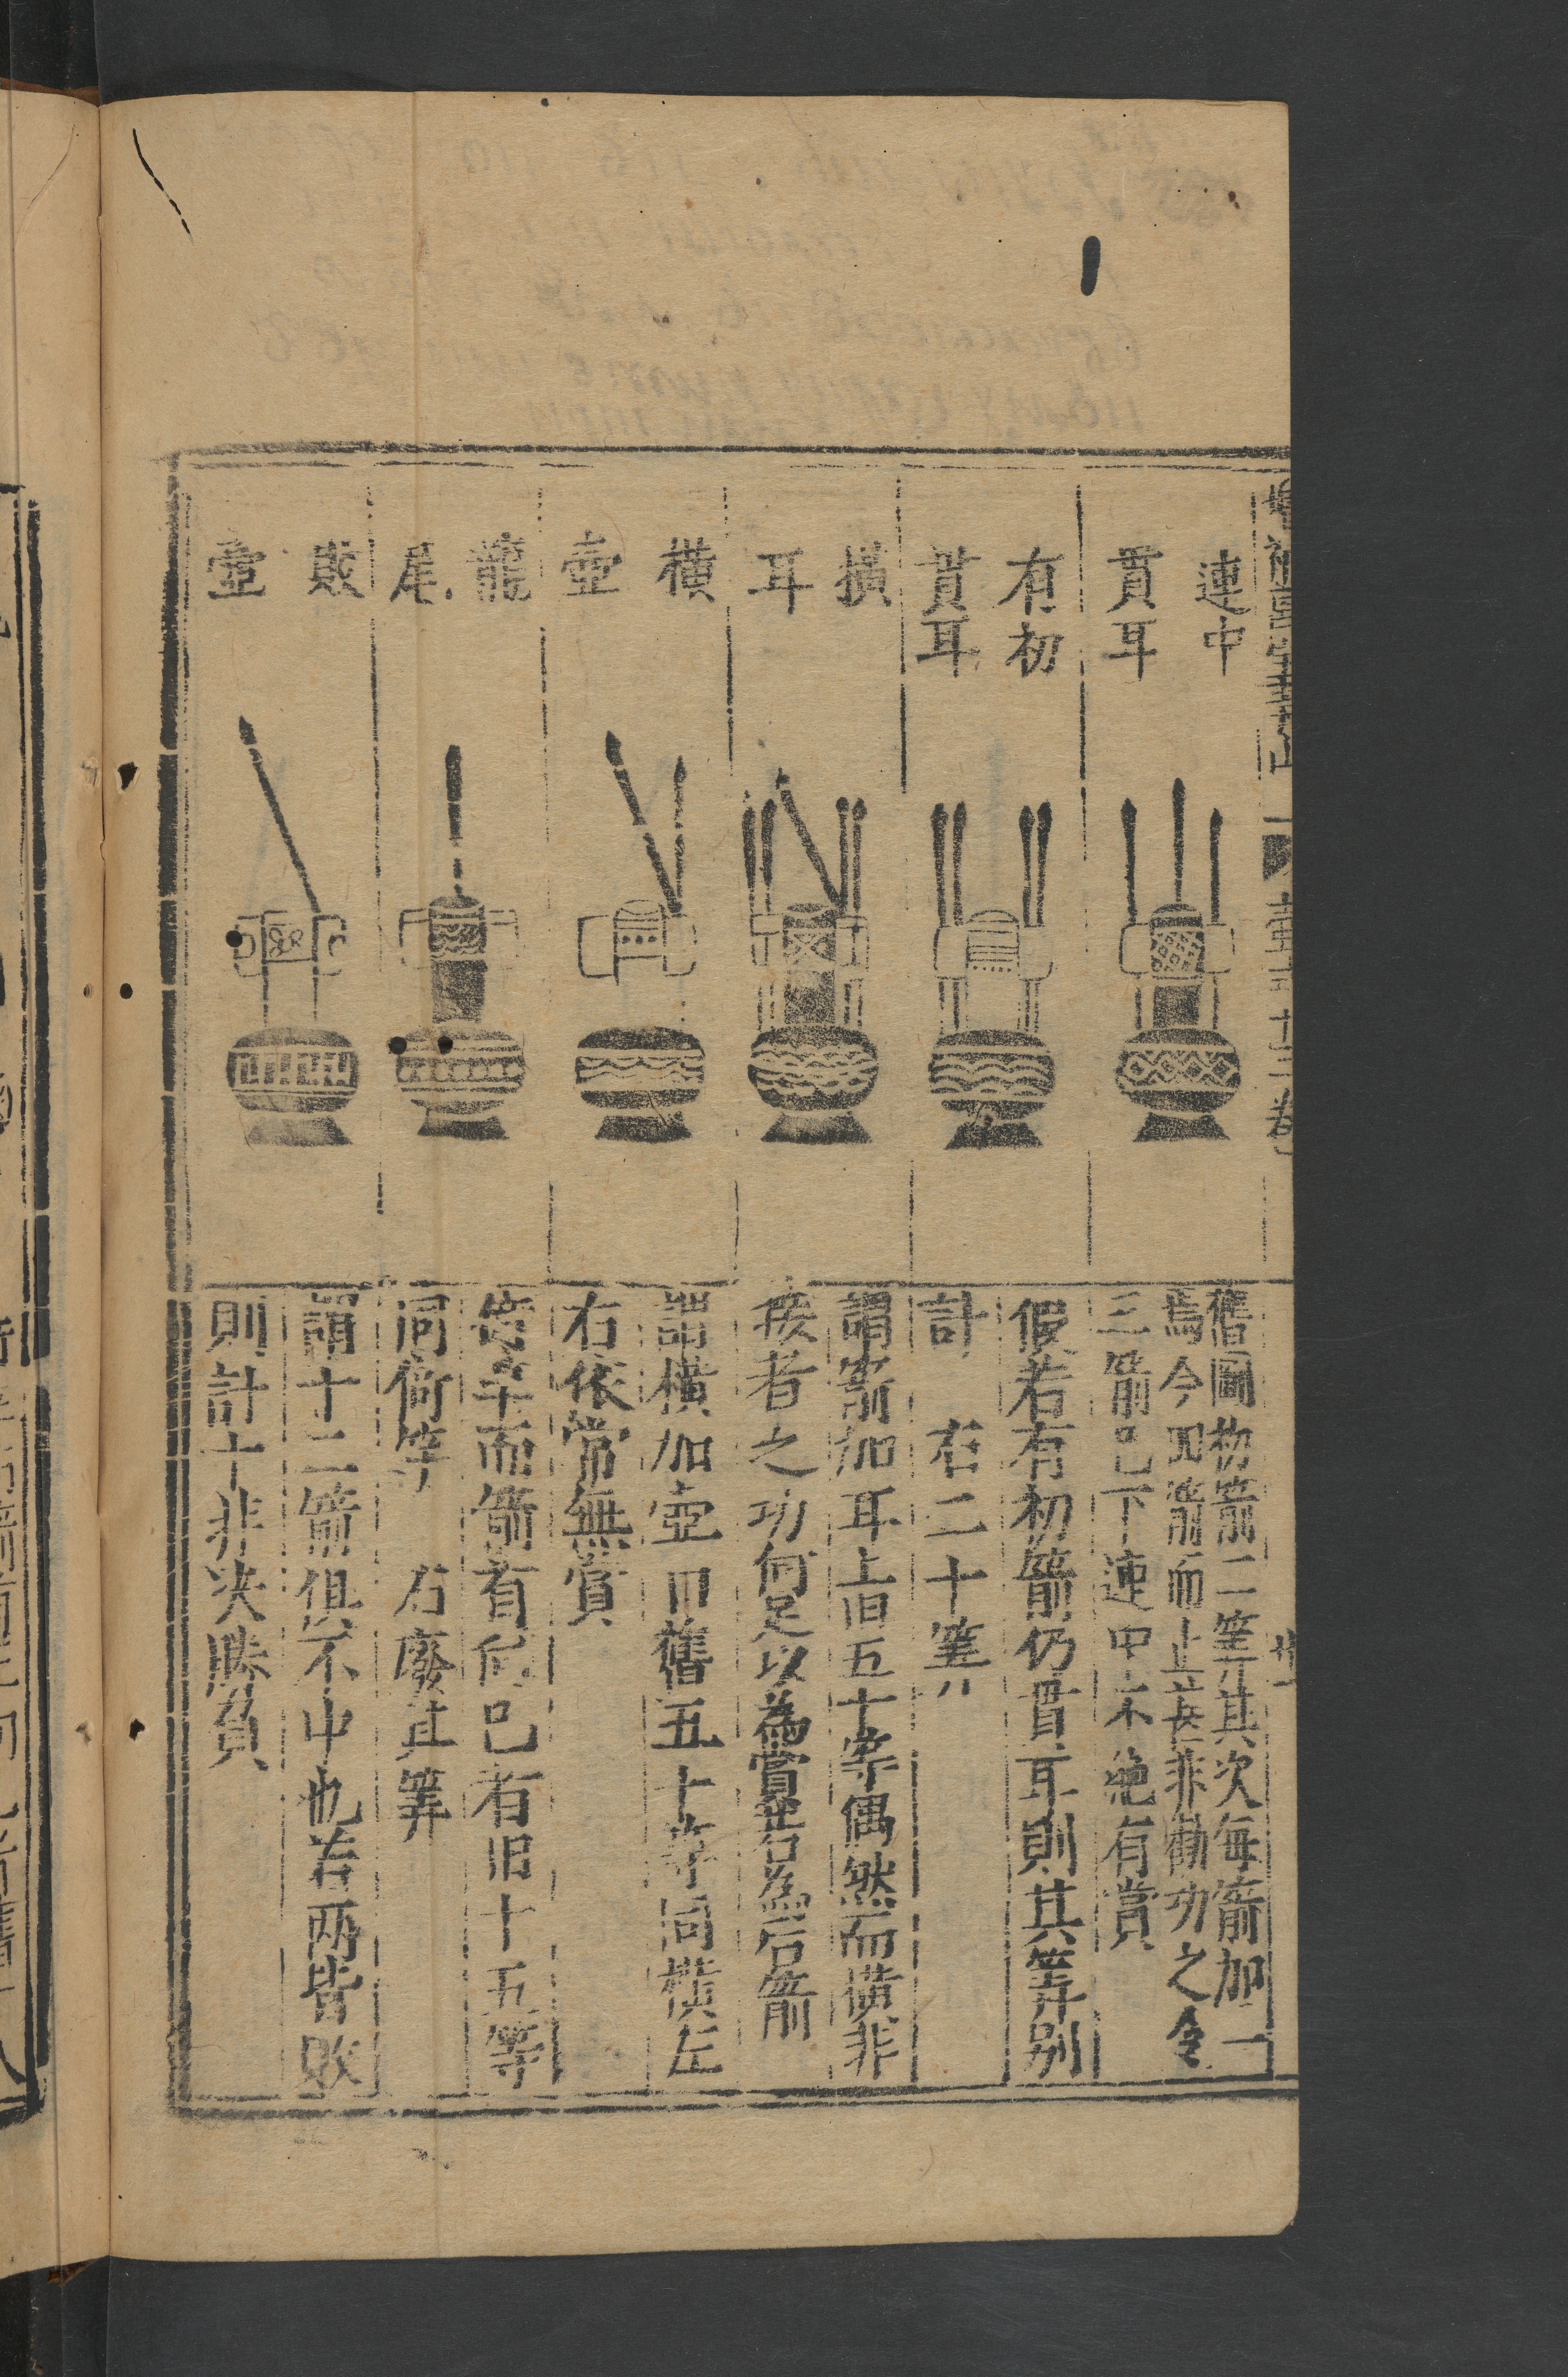 連中
貫耳
有初
貫耳
橫
耳
橫
壺
龍
尾
敗
壺
舊圖初箭二筭其次每箭加一
焉今四箭而止甚非勸功之令
三箭已下連中不絶有賞
假若有初箭仍貫耳則其筭别
計 右二十筭
謂箭加耳上旧五十筭偶然而橫非
疾者之功何足以為賞並右為后箭
謂橫加壺口舊五十筭同橫
右依常無賞
而箭有 已右旧十五筭
同倚竿 右廢其筭
謂十二箭俱不中也若两皆敗
則計十非决勝負